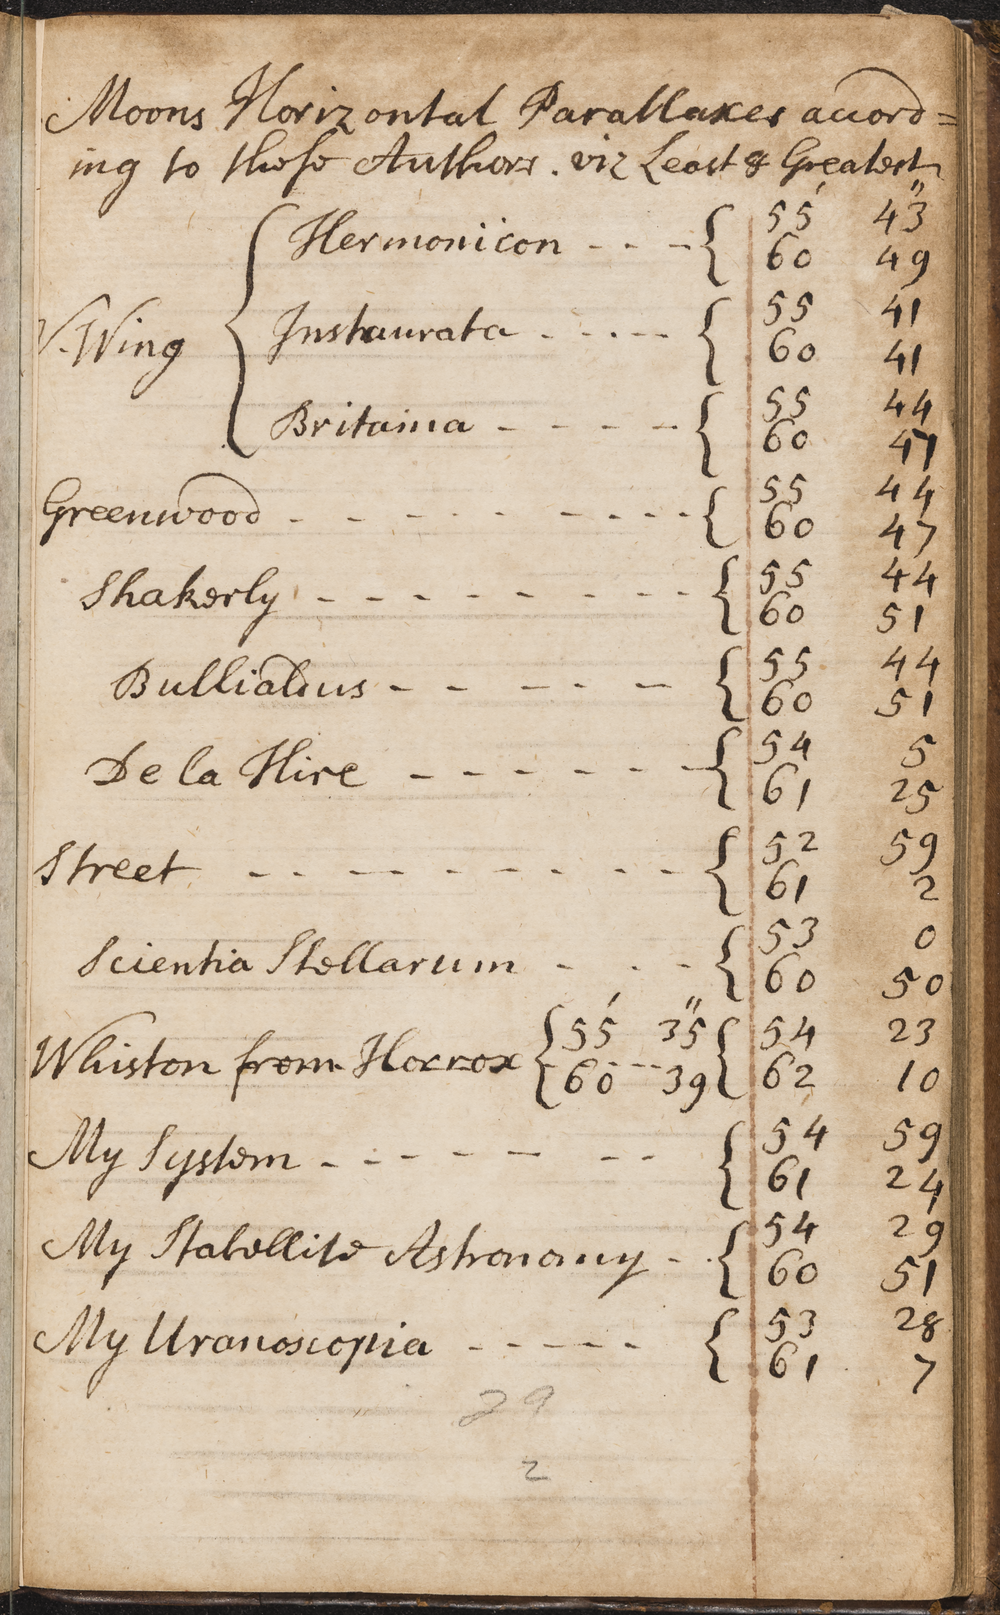 Moons Horizontal Parallaxes accord=
ing to these Authors. viz Least & Greatest
V. Wing { Hermonicon - - - { 55′ 43″
60 49
Instaurata - - - - - { 55 41
60 41
Britaina - - - - - { 55 44
60 47
Greenwood - - - - - - - - - { 55 44
60 47
Shakerly - - - - - - - - - { 55 44
60 51
Bullialdus - - - - - { 55 44
60 51
De la Hire - - - - - - { 54 5
61 25
Street - - - - - - - - - { 52 59
61 2
Scientia Stellarum - - - { 53 0
60 50
Whiston from Horrox { 55′ 35″ { 54 23
60 - - - 39 { 62 10
My System - - - - - - - { 54 59
61 24
My Statellite Astronomy - - { 54 29
60 51
My Uranoscopia - - - - - { 53 28
61 7
29
2